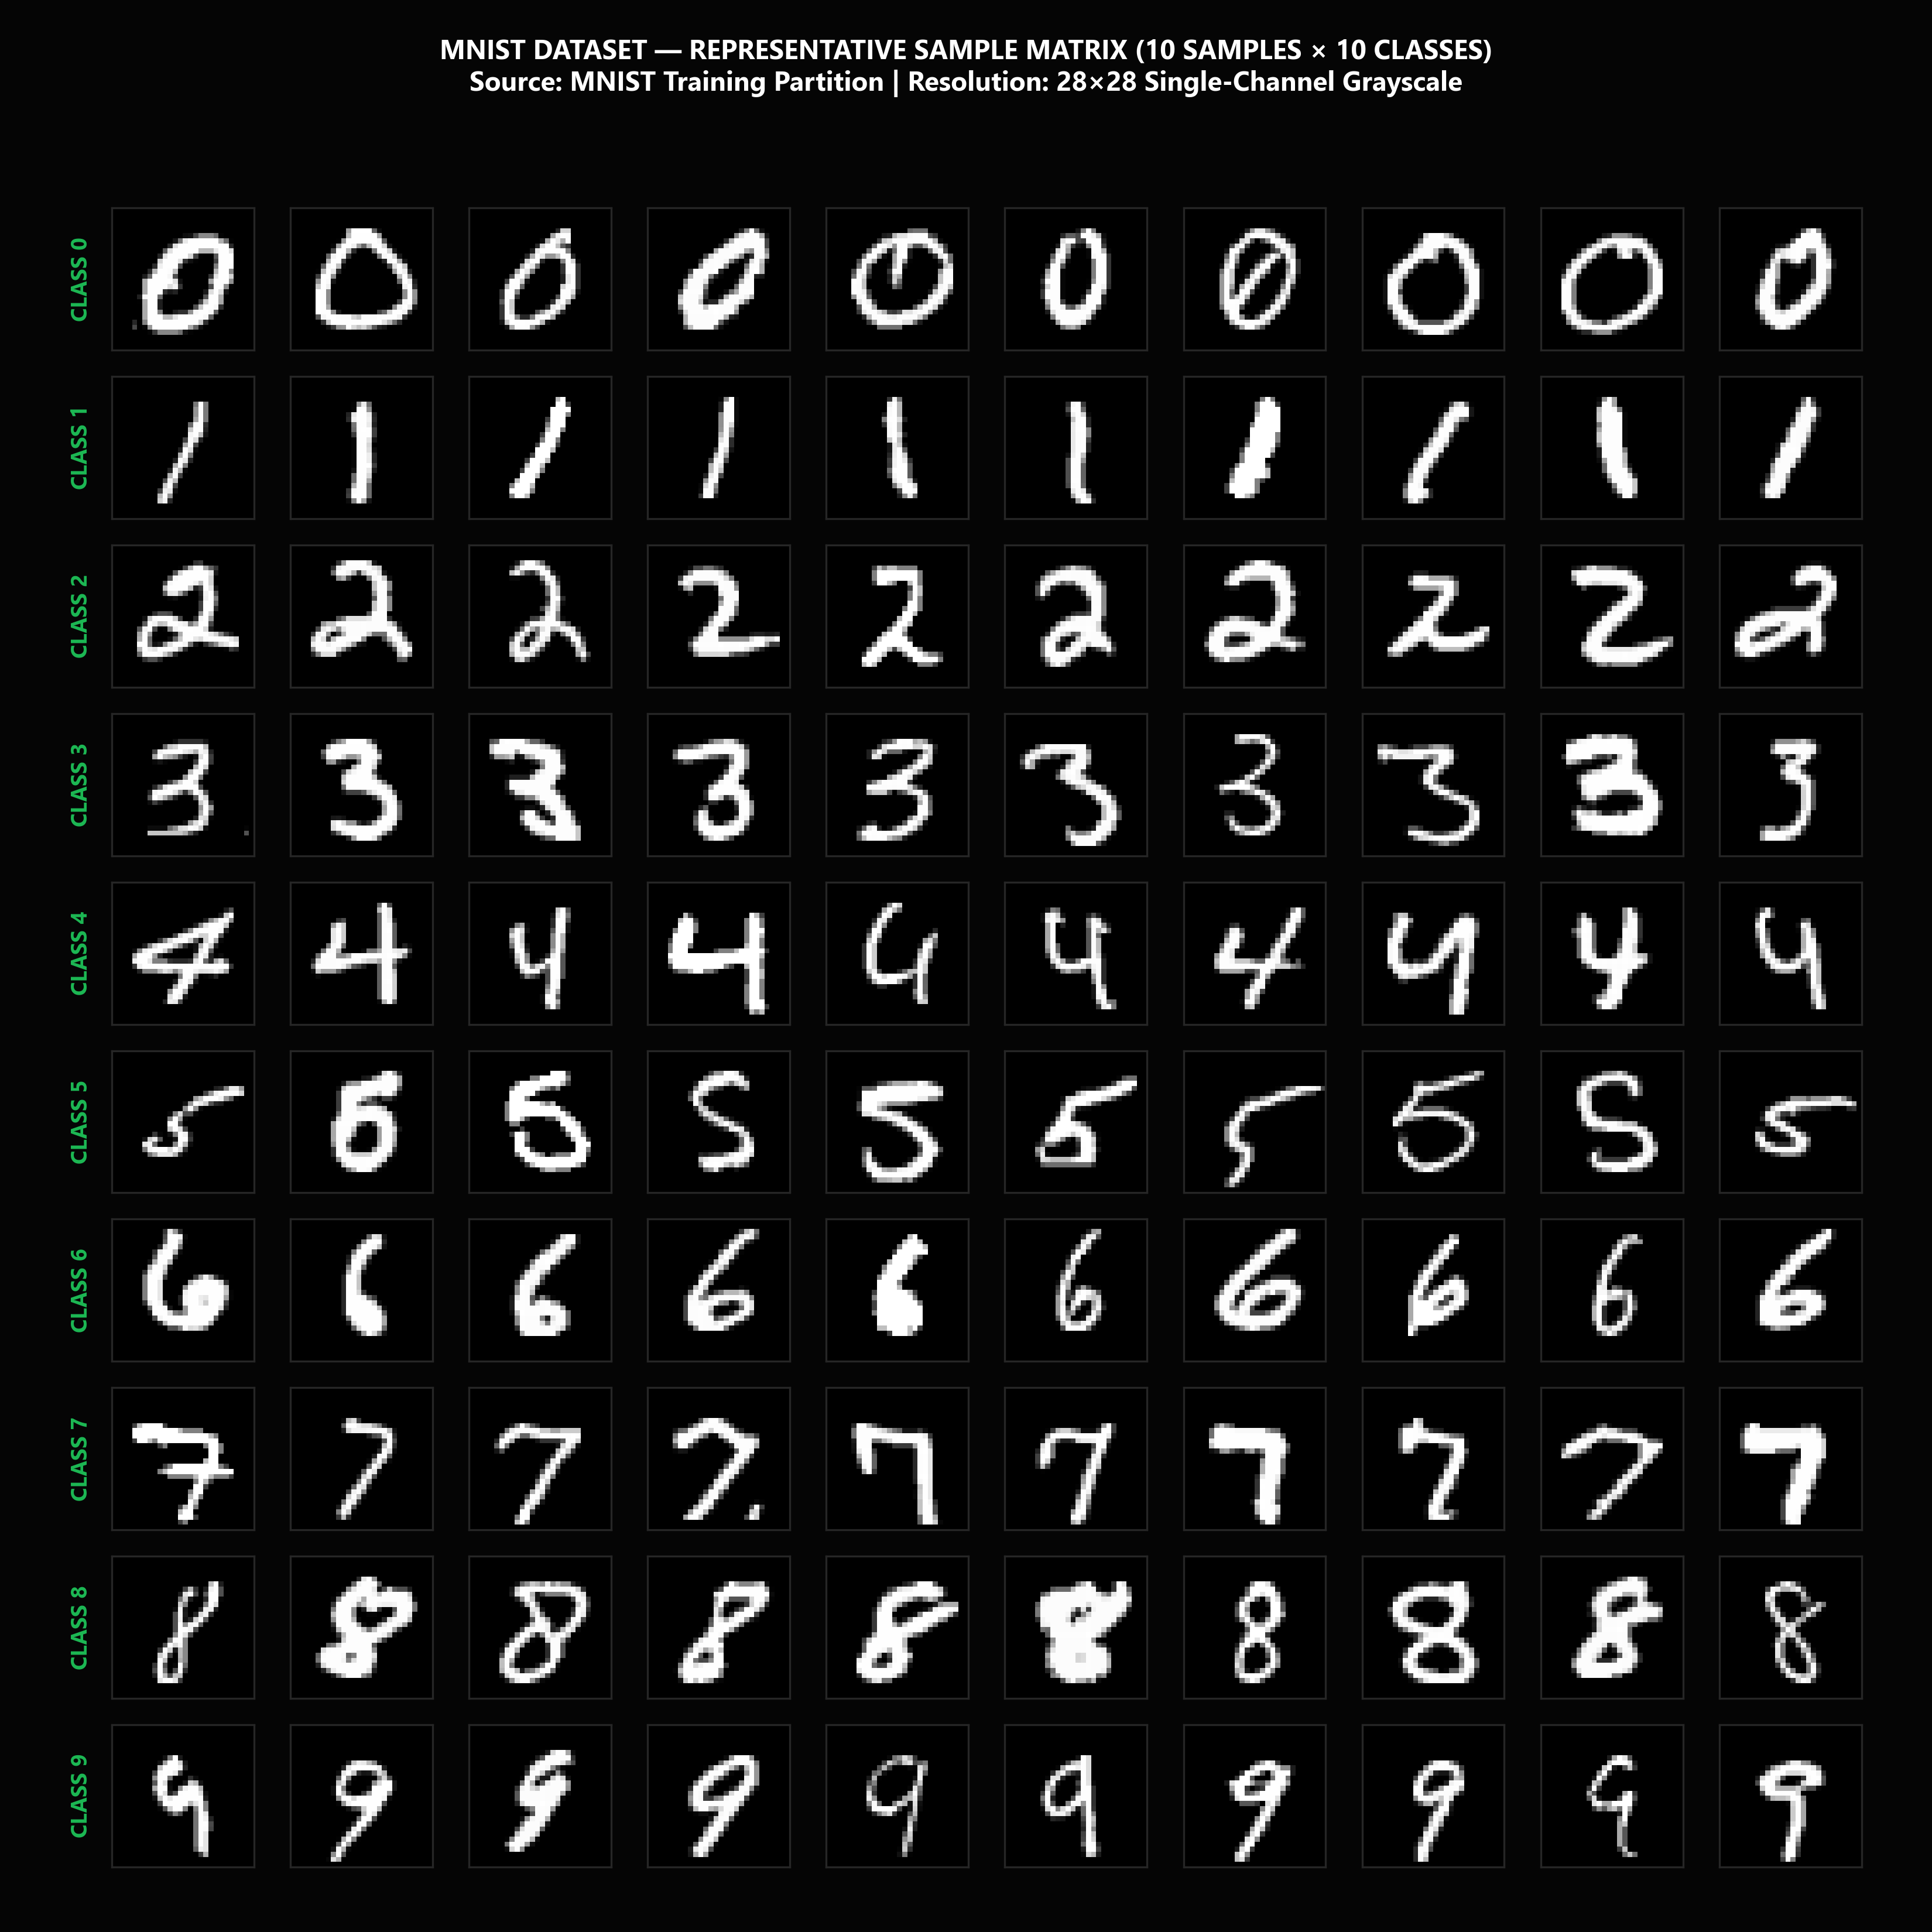 MNIST DATASET — REPRESENTATIVE SAMPLE MATRIX (10 SAMPLES × 10 CLASSES)
Source: MNIST Training Partition | Resolution: 28×28 Single-Channel Grayscale
CLASS 0 0 0 0 0 0 0 0 0 0 0
CLASS 1 1 1 1 1 1 1 1 1 1 1
CLASS 2 2 2 2 2 2 2 2 2 2 2
CLASS 3 3 3 3 3 3 3 3 3 3 3
CLASS 4 4 4 4 4 4 4 4 4 4 4
CLASS 5 5 5 5 5 5 5 5 5 5 5
CLASS 6 6 6 6 6 6 6 6 6 6 6
CLASS 7 7 7 7 7 7 7 7 7 7 7
CLASS 8 8 8 8 8 8 8 8 8 8 8
CLASS 9 9 9 9 9 9 9 9 9 9 9